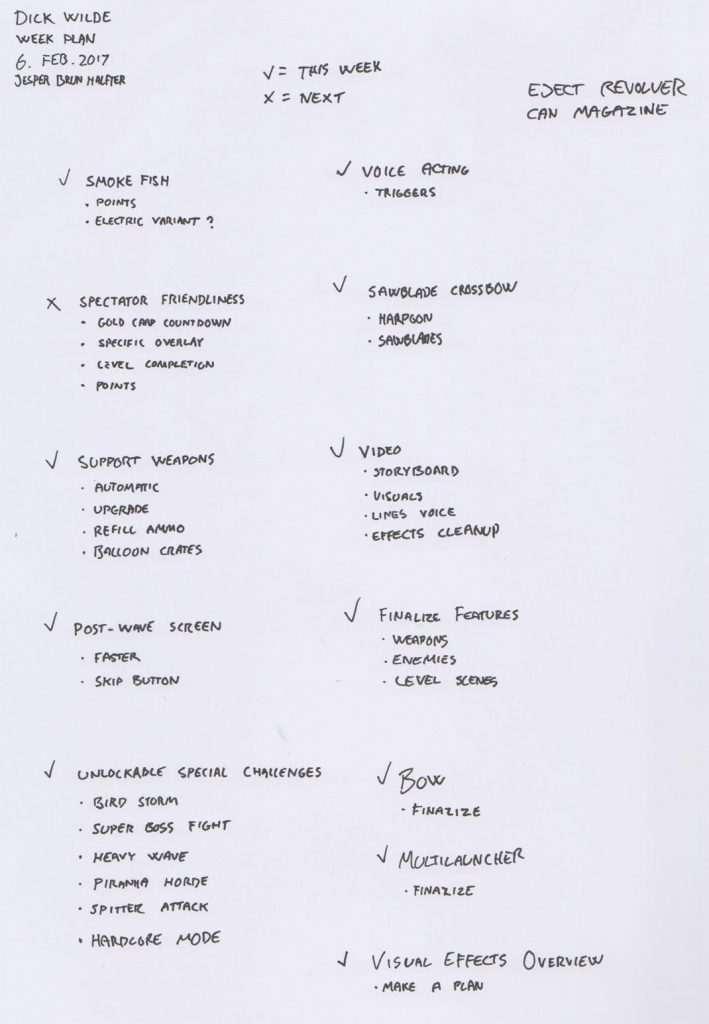 DICK WILDE
WEEK PLAN
6. FEB. 2017
JESPER BRUN HALFTER
√ = THIS WEEK
X = NEXT
EJECT REVOLVER
CAN MAGAZINE
√ SMOKE FISH
• POINTS
• ELECTRIC VARIANT ?
X SPECTATOR FRIENDLINESS
• GOLD CARP COUNTDOWN
• SPECIFIC OVERLAY
• LEVEL COMPLETION
• POINTS
√ SUPPORT WEAPONS
• AUTOMATIC
• UPGRADE
• REFILL AMMO
• BALLOON CRATES
√ POST-WAVE SCREEN
• FASTER
• SKIP BUTTON
√ UNLOCKABLE SPECIAL CHALLENGES
• BIRD STORM
• SUPER BOSS FIGHT
• HEAVY WAVE
• PIRANHA HORDE
• SPITTER ATTACK
• HARDCORE MODE
√ VOICE ACTING
• TRIGGERS
√ SAWBLADE CROSSBOW
• HARPOON
• SAWBLADES
√ VIDEO
• STORYBOARD
• VISUALS
• LINES VOICE
• EFFECTS CLEANUP
√ FINALIZE FEATURES
• WEAPONS
• ENEMIES
• LEVEL SCENES
√ BOW
• FINALIZE
√ MULTILAUNCHER
• FINALIZE
√ VISUAL EFFECTS OVERVIEW
• MAKE A PLAN